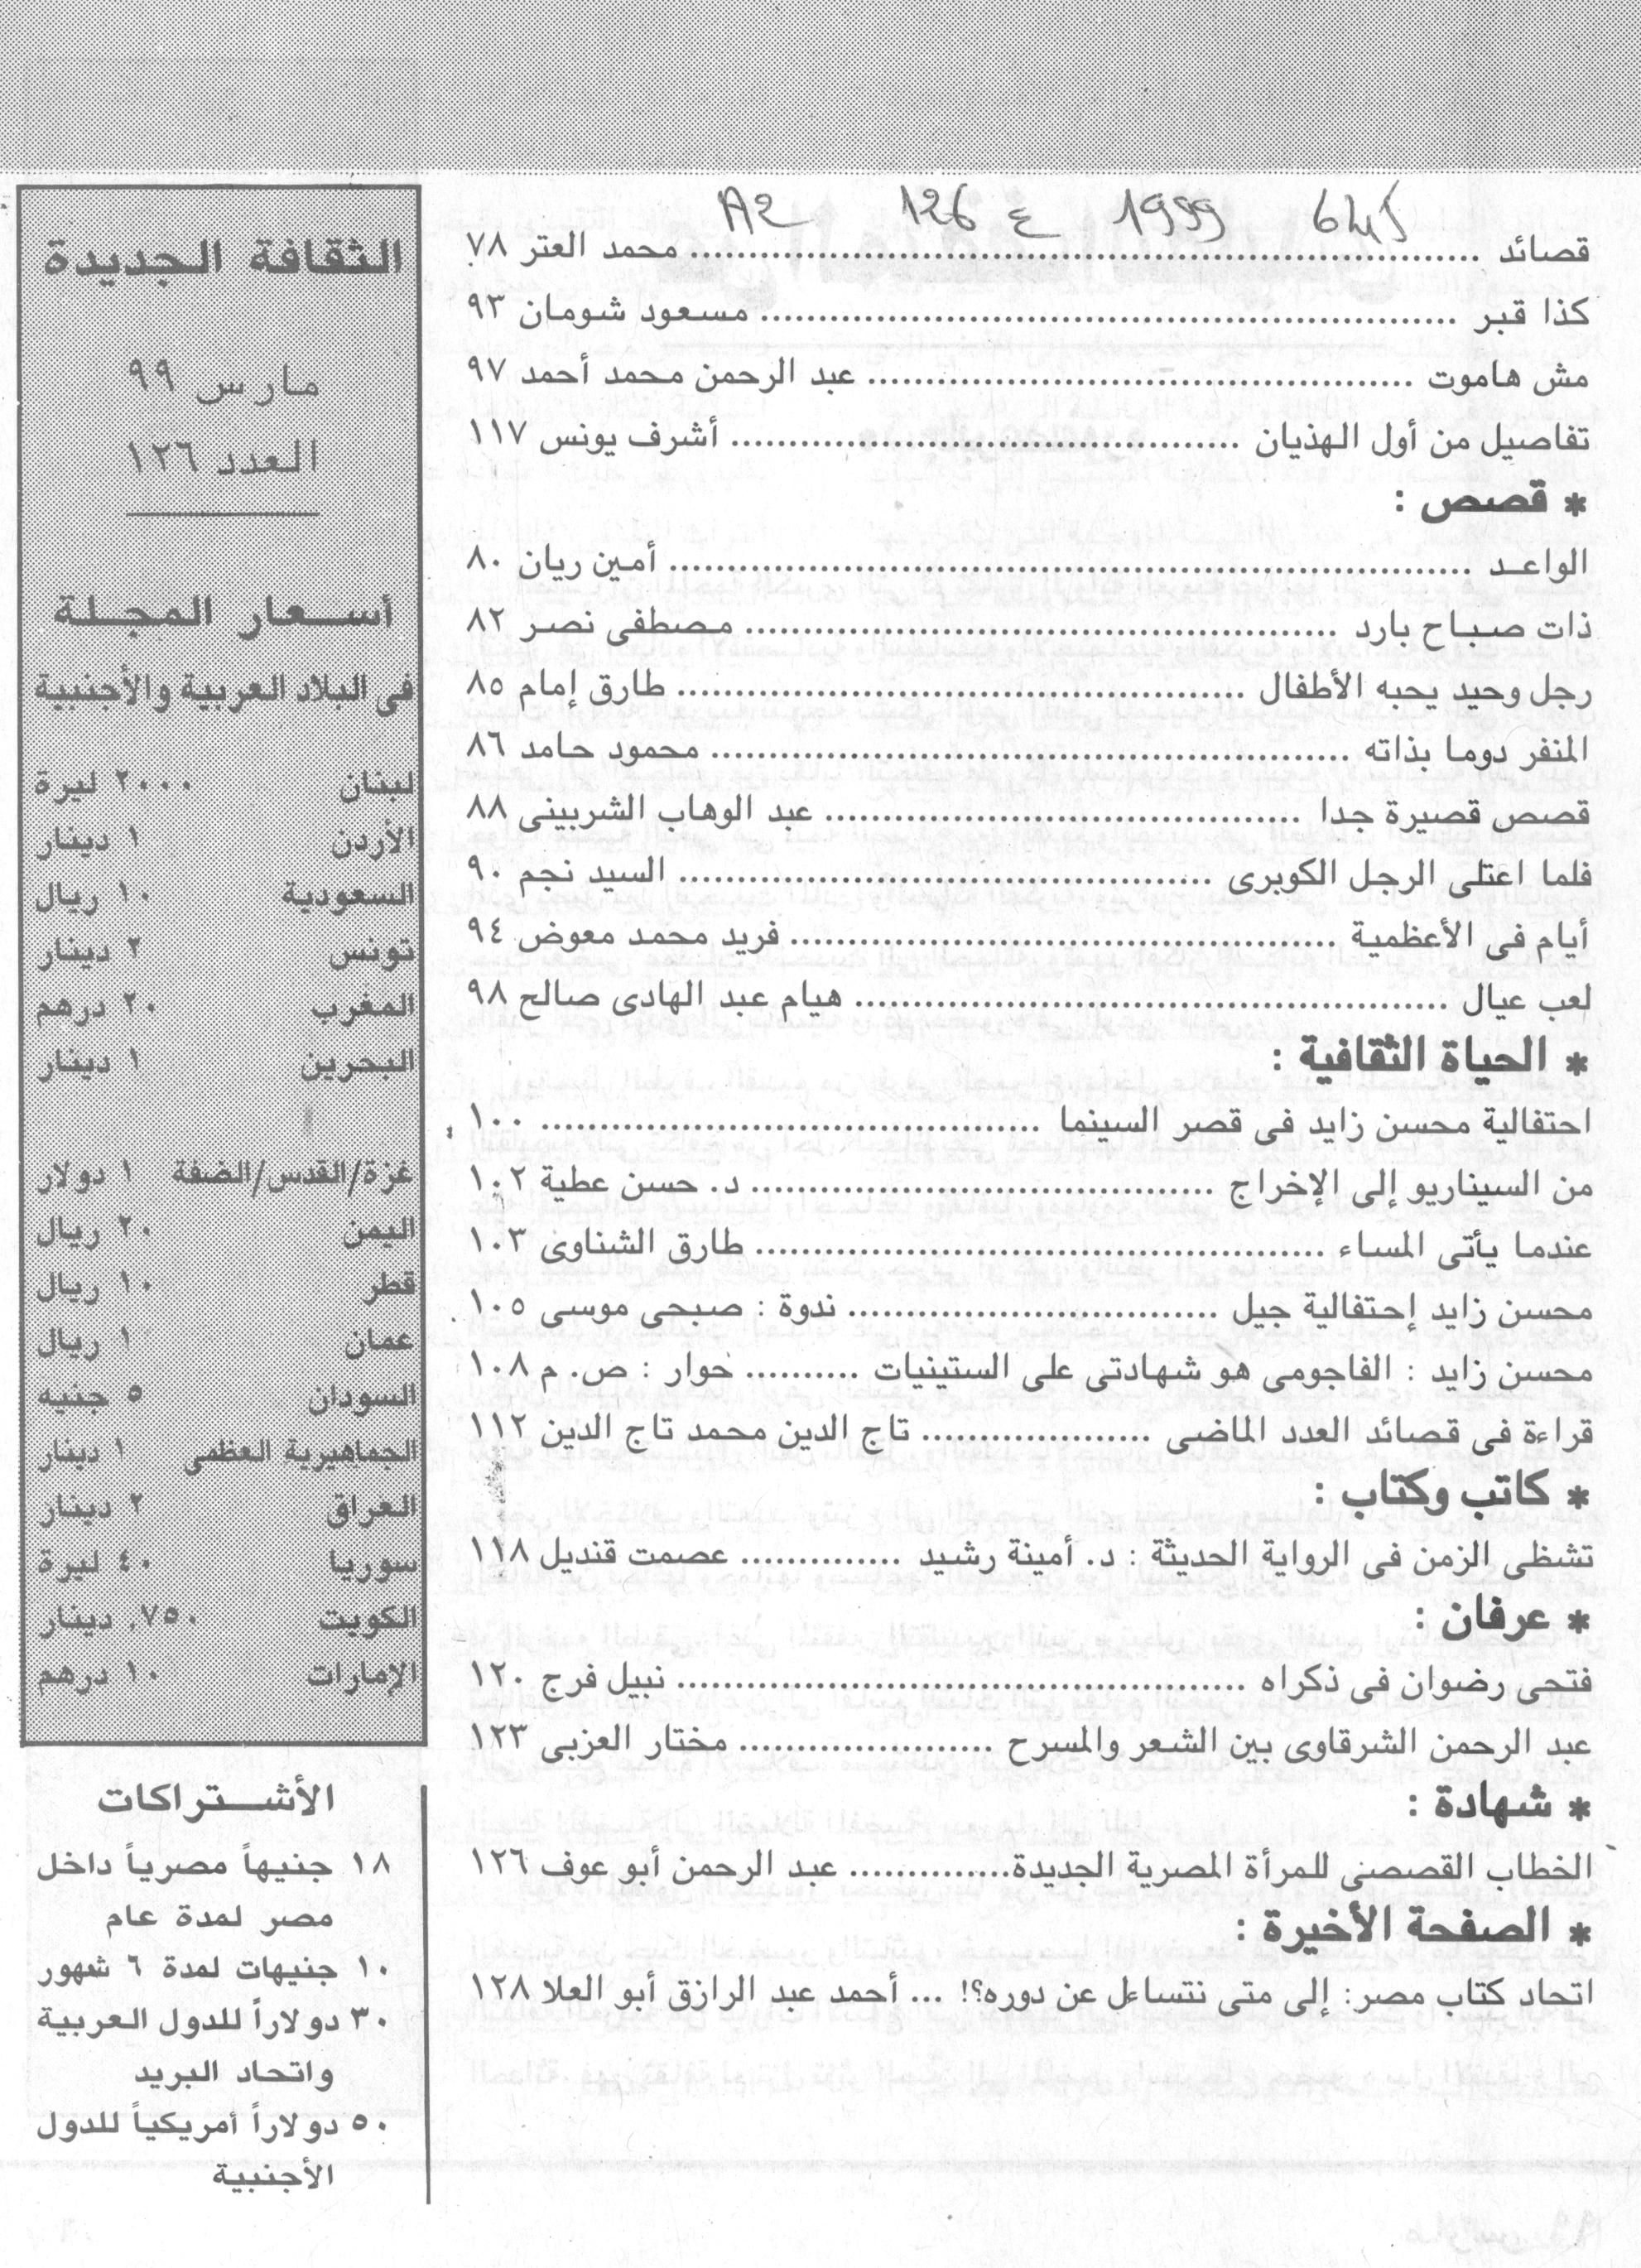 A2 126 ع 1999 مارس
قصائد ........ محمد العتر ٧٨
كذا قبر ........ مسعود شومان ٩٣
مش هاموت ........ عبد الرحمن محمد أحمد ٩٧
تفاصيل من أول الهذيان ........ أشرف يونس ١١٧
* قصص :
الواعد ........ أمين ريان ٨٠
ذات صباح بارد ........ مصطفى نصر ٨٢
رجل وحيد يحبه الأطفال ........ طارق إمام ٨٥
المنفر دوما بذاته ........ محمود حامد ٨٦
قصص قصيرة جدا ........ عبد الوهاب الشربينى ٨٨
فلما اعتلى الرجل الكوبرى ........ السيد نجم ٩٠
أيام فى الأعظمية ........ فريد محمد معوض ٩٤
لعب عيال ........ هيام عبد الهادى صالح ٩٨
* الحياة الثقافية :
احتفالية محسن زايد فى قصر السينما ........ ١٠٠
من السيناريو إلى الإخراج ........ د. حسن عطية ١٠٢
عندما يأتى المساء ........ طارق الشناوى ١٠٣
محسن زايد إحتفالية جيل ........ ندوة : صبحى موسى ١٠٥
محسن زايد : الفاجومى هو شهادتى على الستينيات ........ حوار : ص. م ١٠٨
قراءة فى قصائد العدد الماضى ........ تاج الدين محمد تاج الدين ١١٢
* كاتب وكتاب :
تشظى الزمن فى الرواية الحديثة : د. أمينة رشيد ........ عصمت قنديل ١١٨
* عرفان :
فتحى رضوان فى ذكراه ........ نبيل فرج ١٢٠
عبد الرحمن الشرقاوى بين الشعر والمسرح ........ مختار العزبى ١٢٣
* شهادة :
الخطاب القصصى للمرأة المصرية الجديدة ........ عبد الرحمن أبو عوف ١٢٦
* الصفحة الأخيرة :
اتحاد كتاب مصر: إلى متى نتساءل عن دوره؟! ... أحمد عبد الرازق أبو العلا ١٢٨
الثقافة الجديدة
مارس ٩٩
العدد ١٢٦
أسعار المجلة
فى البلاد العربية والأجنبية
لبنان ٢٠٠٠ ليرة
الأردن ١ دينار
السعودية ١٠ ريال
تونس ٢ دينار
المغرب ٢٠ درهم
البحرين ١ دينار
غزة/القدس/الضفة ١ دولار
اليمن ٢٠ ريال
قطر ١٠ ريال
عمان ١ ريال
السودان ٥ جنيه
الجماهيرية العظمى ١ دينار
العراق ٢ دينار
سوريا ٤٠ ليرة
الكويت ٧٥٠, دينار
الإمارات ١٠ درهم
الأشتراكات
١٨ جنيهاً مصرياً داخل
مصر لمدة عام
١٠ جنيهات لمدة ٦ شهور
٣٠ دولاراً للدول العربية
واتحاد البريد
٥٠ دولاراً أمريكياً للدول
الأجنبية